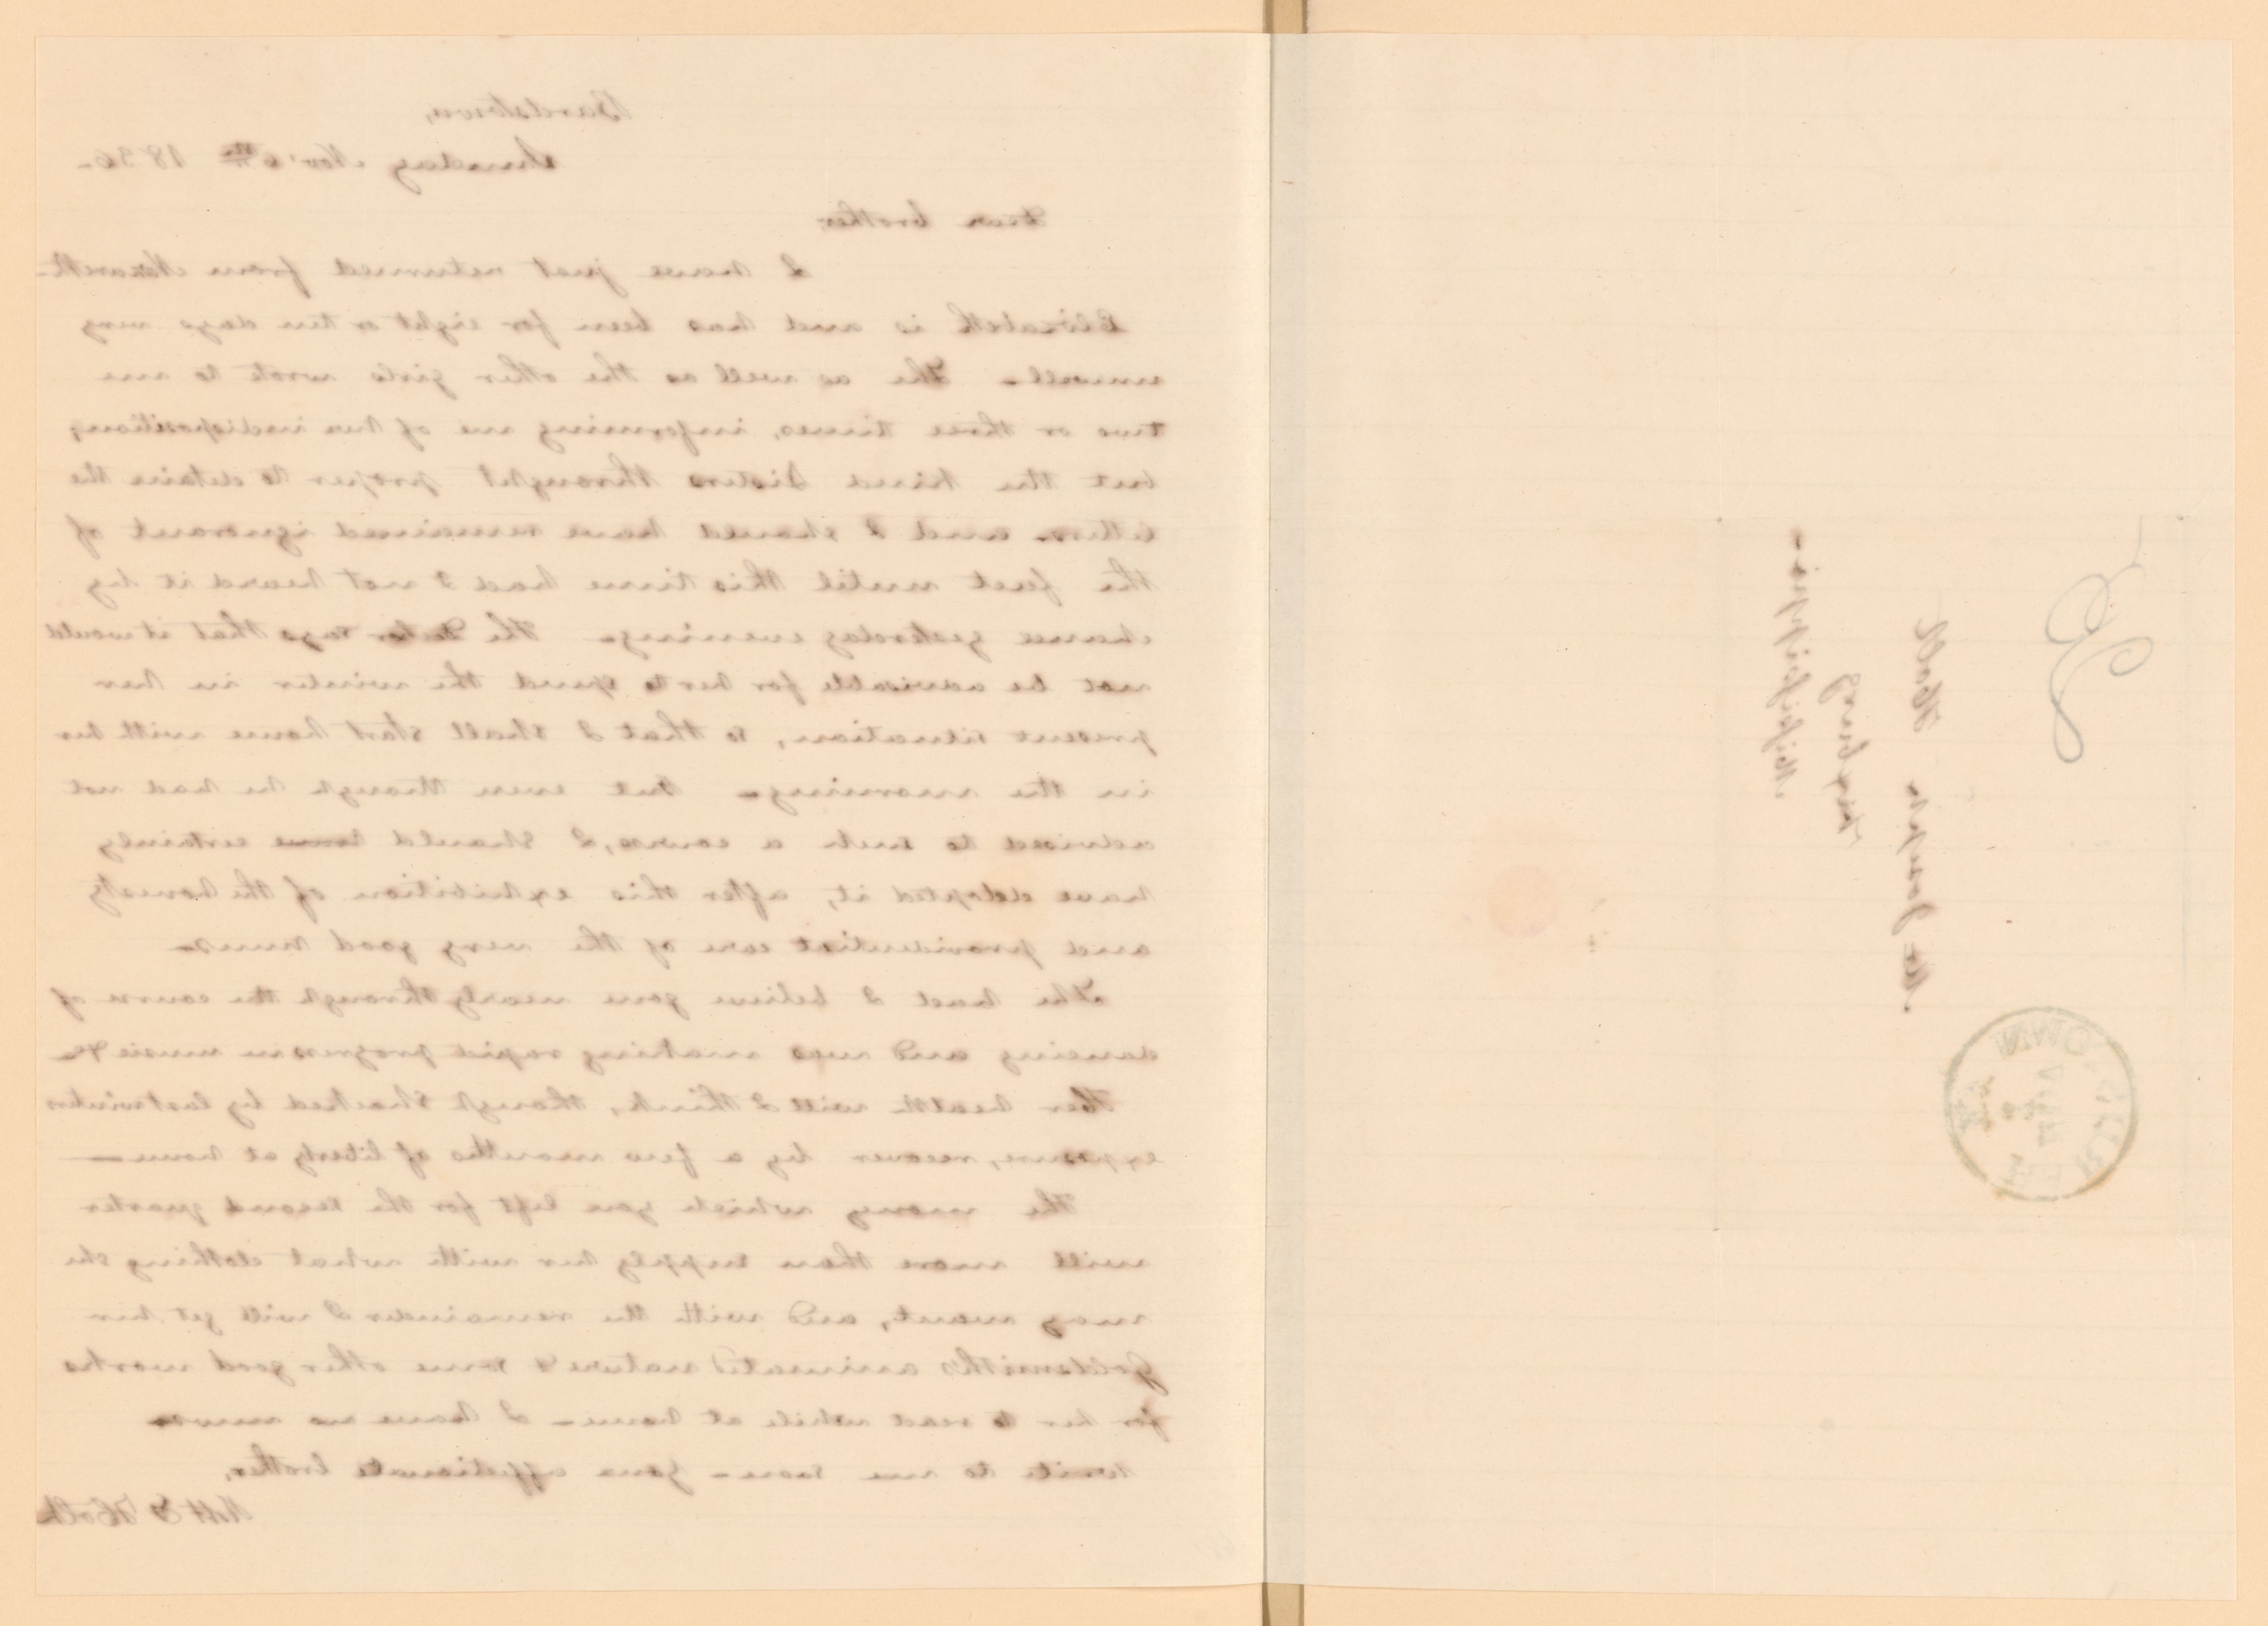 Bardstown,
Sunday Nov: 6th 1836-
Dear brother
I have just returned from Nazareth-
Elizabeth is and has been for eight or ten days very
unwell- She as well as the other girls wrote to me
two or three times, informing me of her indisposition,
but the kind Sisters thought proper to detain the
letters- and I should have remained ignorant of
the fact until this time had I not heard it by
chance yesterday evening- The says that it would
not be advisable for her to spend the winter in her
present situation, so that I shall start home with her
in the morning- but even though he had not
advised to such a course, I, should have certainly
have adopted it, after this exhibition of the honesty
and providential care of the very good nuns-
She had I believe gone nearly through the course of
dancing and was making rapid progress in music &c
Her health will I think, though shocked by last winters
exposure, recover by a few months of liberty at home-
The money which you left for the second quarter
will more than supply her with what clothing she
may want, and with the remainder I will get her
Goldsmith's animated nature & some other good works
for her to read while at home- I have no news-
Write to me soon- Your affectionate brother,
Holt
Mr Joseph Holt
Vixburg
Mississippi-